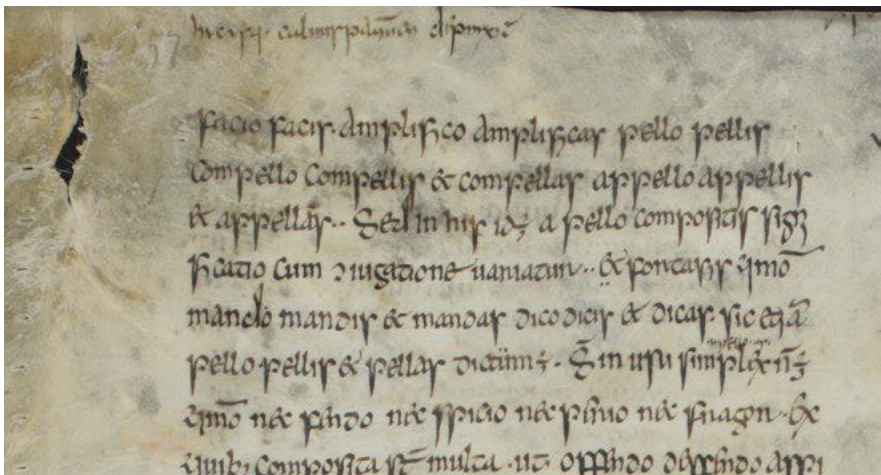 facio facis. amplifico amplificas pello pellis
Compello Compellis & compellas appello appellis
& appellas.. Sed in his id÷ a pello compositis signi
ficatio cum ɔiugatione uariatur.. & fortasis q̄mo᷒
mando mandis & mandas dico dicis & dicas. sic
pello pellis & pellas dictum÷. in usu simplex n̄÷
nec fendo nec spicio nec nec fragor. Ex
quib; composita s̄t multa. ut offendo defendo aspi